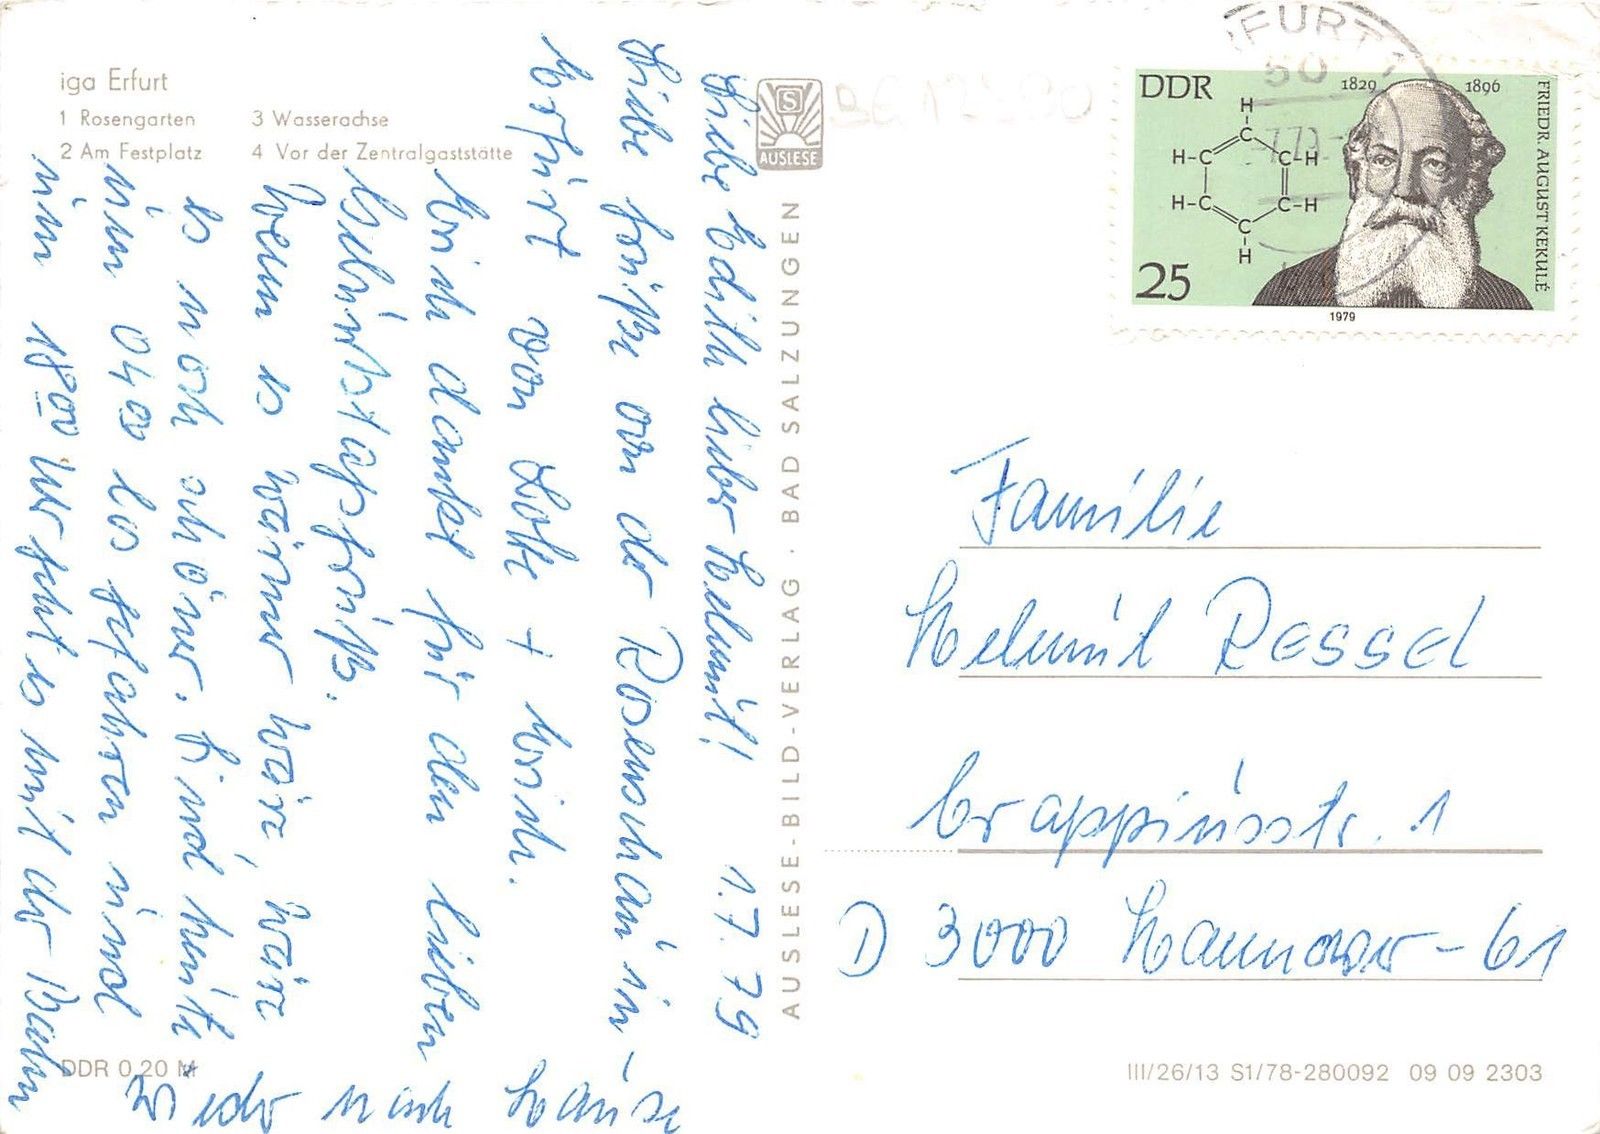 iga Erfurt
1 Rosengarten
2 Am Festplatz
3 Wasserachse
4 Vor der Zentralgaststätte
S
AUSLESE
AUSLESE-BILD-VERLAG · BAD SALZUNGEN
Liebe Edith lieber Helmut! 1.7.79
Liebe Grüße von der Rosenschau in
Erfurt von Lotte + Erich.
Erich dankt für den lieben
Geburtstagsgruß.
Wenn es wärmer wäre, wäre
es noch schöner. Sind heute
um 0400 los gefahren und
um 1800 Uhr geht es mit der Bahn
wieder nach Hause
DDR 0,20 M
FURT
50
7.79
DDR
1829
1896
FRIEDR. AUGUST KEKULÉ
H
H-C
C-H
H-C
C-H
C
H
25
1979
Familie
Helmut RESSEL
Grappiusstr. 1
D 3000 Hannover-61
III/26/13 S1/78-280092 09 09 2303